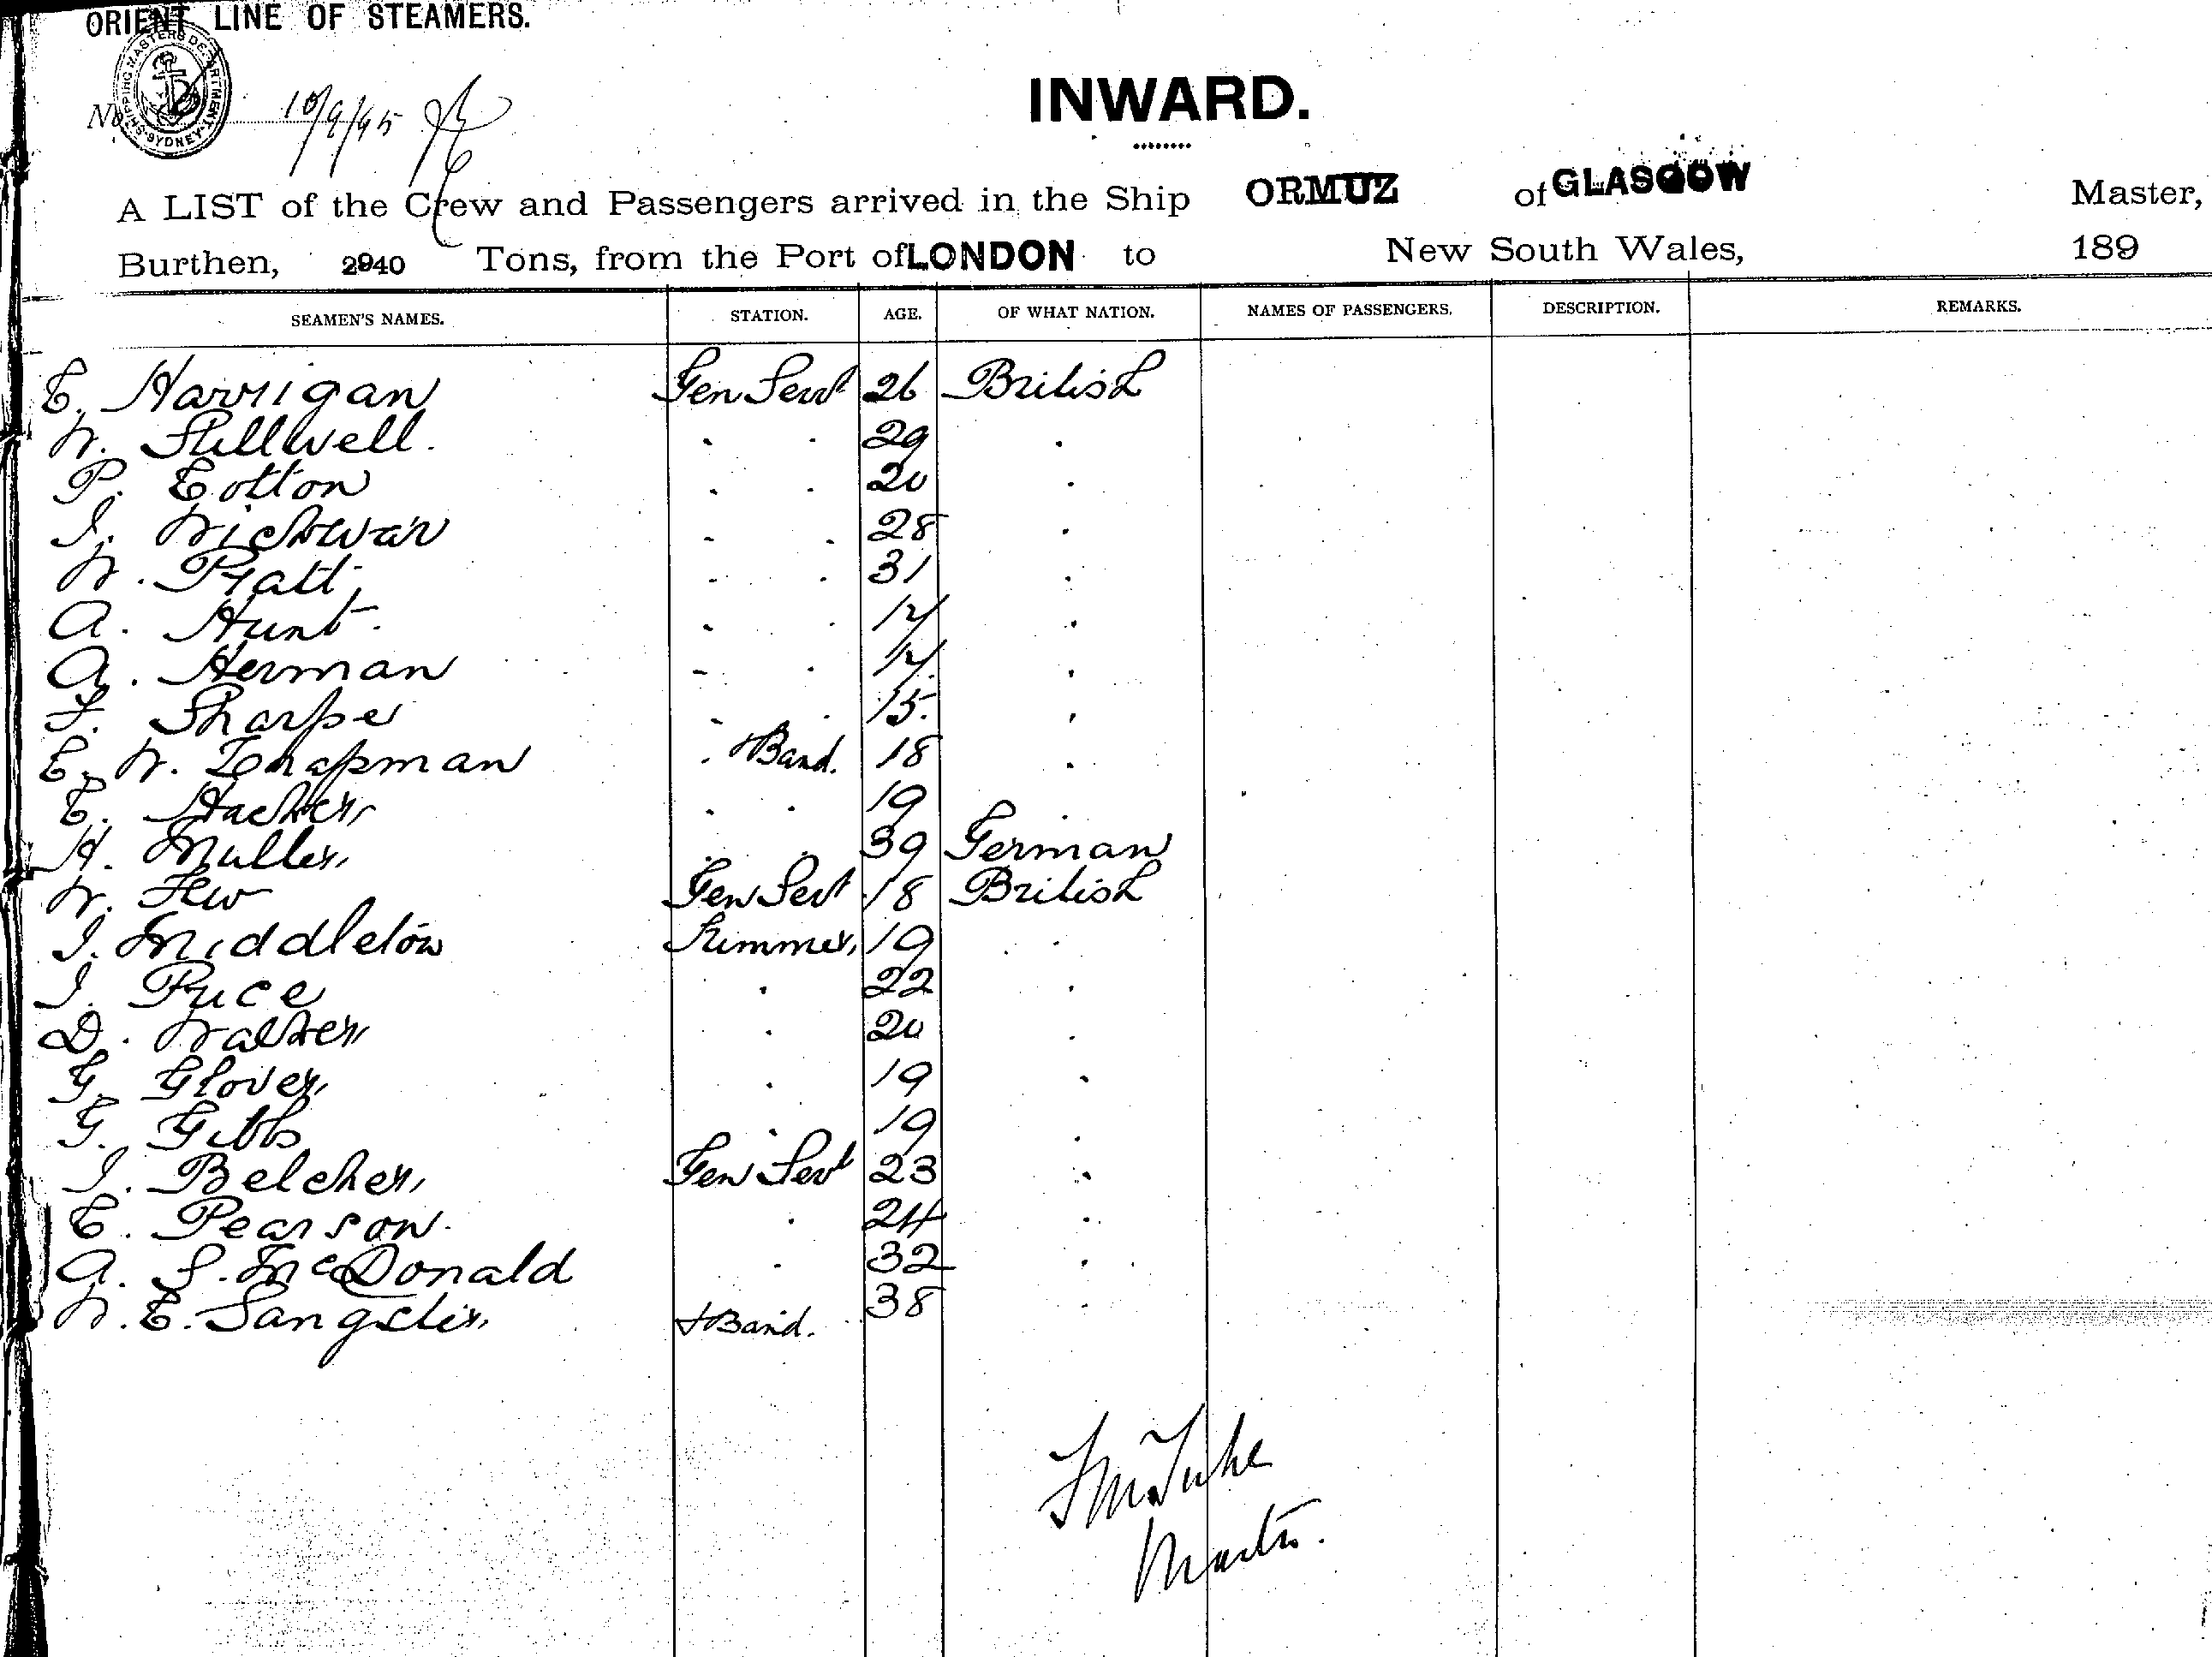 ORIENT LINE OF STEAMERS.
SHIPPING MASTERS DEPARTMENT SYDNEY
No 10/9/95
INWARD.
A LIST of the Crew and Passengers arrived in the Ship ORMUZ of GLASGOW Master,
Burthen, 2940 Tons, from the Port of LONDON to New South Wales, 189
SEAMEN'S NAMES. STATION. AGE. OF WHAT NATION. NAMES OF PASSENGERS. DESCRIPTION. REMARKS.
C. Harrigan Gen Servt 26 British
W. Stillwell. " " 29 "
P. Cotton " " 20 "
J. " " 28 "
W. Pratt " " 31 "
A. Hunt. " " 17 "
A. Herman " " 17. "
F. Sharpe " " 15. "
E. W. Chapman " + Band. 18 "
C. " " 19 "
H. Muller " " 39 German
W. Few Gen Servt 18 British
J. Middleton Trimmer 19 "
J. Price " 22 "
D. Walker " 20 "
G. Glover " 19 "
G. Gibbs " 19 "
J. Belcher Gen Servt 23 "
C. Pearson. " 24 "
A. S. McDonald " 32 "
W. E. Sangster + Band. 38 "
F M Tuke
Master.